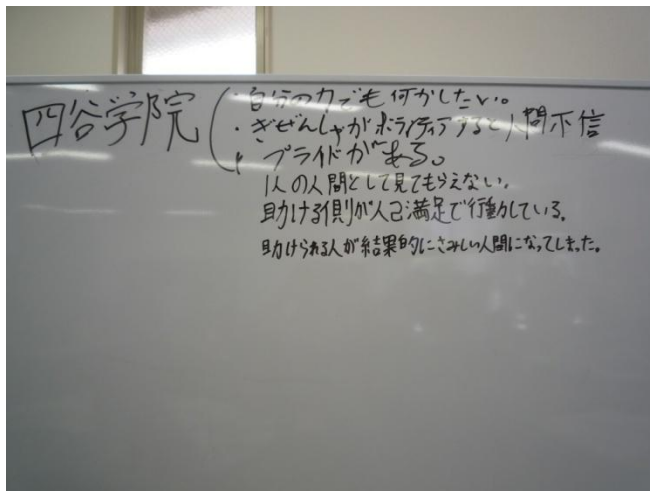 四谷学院
・自分の力でも何かしたい。
・ぎぜんしゃがボランティアすると人間不信
・プライドがある。
1人の人間として見てもらえない。
助ける側が人己満足で行動している。
助けられる人が結果的にさみしい人間になってしまった。